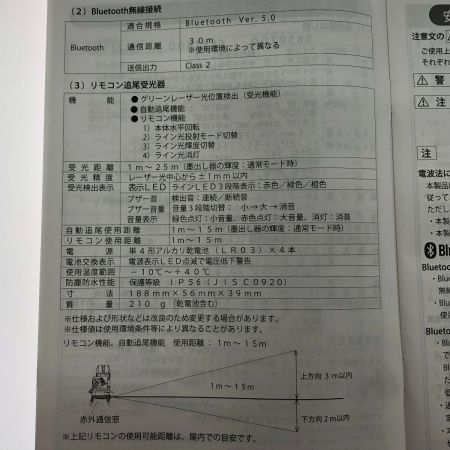 （２）Bluetooth無線接続
Bluetooth
適合規格 Bluetooth Ver. 5.0
通信距離 ３０ｍ
※使用環境によって異なる
送信出力 Class 2
（３）リモコン追尾受光器
機能
●グリーンレーザー光位置検出（受光機能）
●自動追尾機能
●リモコン機能
１）本体水平回転
２）ライン光投射モード切替
３）ライン光輝度切替
４）ライン光消灯
受光距離 １ｍ～２５ｍ（墨出し器の輝度：通常モード時）
受光精度 レーザー光中心から±１mm以内
受光検出表示 表示ＬＥＤ ラインＬＥＤ３段階表示：赤色／緑色／橙色
ブザー音 検出音：連続／断続音
ブザー音量 音量３段階切替： 小→大→消音
音量表示 緑色点灯：小音量、赤色点灯：大音量、消灯：消音
自動追尾使用距離 １ｍ～１５ｍ（墨出し器の輝度：通常モード時）
リモコン使用距離 １ｍ～１５ｍ
電源 単４形アルカリ乾電池（ＬＲ０３）×４本
電池交換表示 電源表示ＬＥＤ点滅で電圧低下警告
使用温度範囲 －１０℃～＋４０℃
防塵防水性能 保護等級 ＩＰ５６（ＪＩＳＣ０９２０）
寸法 １８８mm×５６mm×３９mm
質量 ２１０ｇ（乾電池含む）
※仕様および形状などは改良のため変更する場合があります。
※仕様値は使用環境条件等により異なることがあります。
リモコン機能、自動追尾機能 使用距離：１ｍ～１５ｍ
上方向３ｍ以内
１ｍ～１５ｍ
下方向２ｍ以内
赤外通信窓
※上記リモコンの使用可能距離は、屋内での目安です。
注意文の
ご使用上
それぞれ
警
注
注
電波法に
本製品
従って
ただし
・本
・本
Bluetooth
・Blu
無線
・Blu
使用
Bluetoot